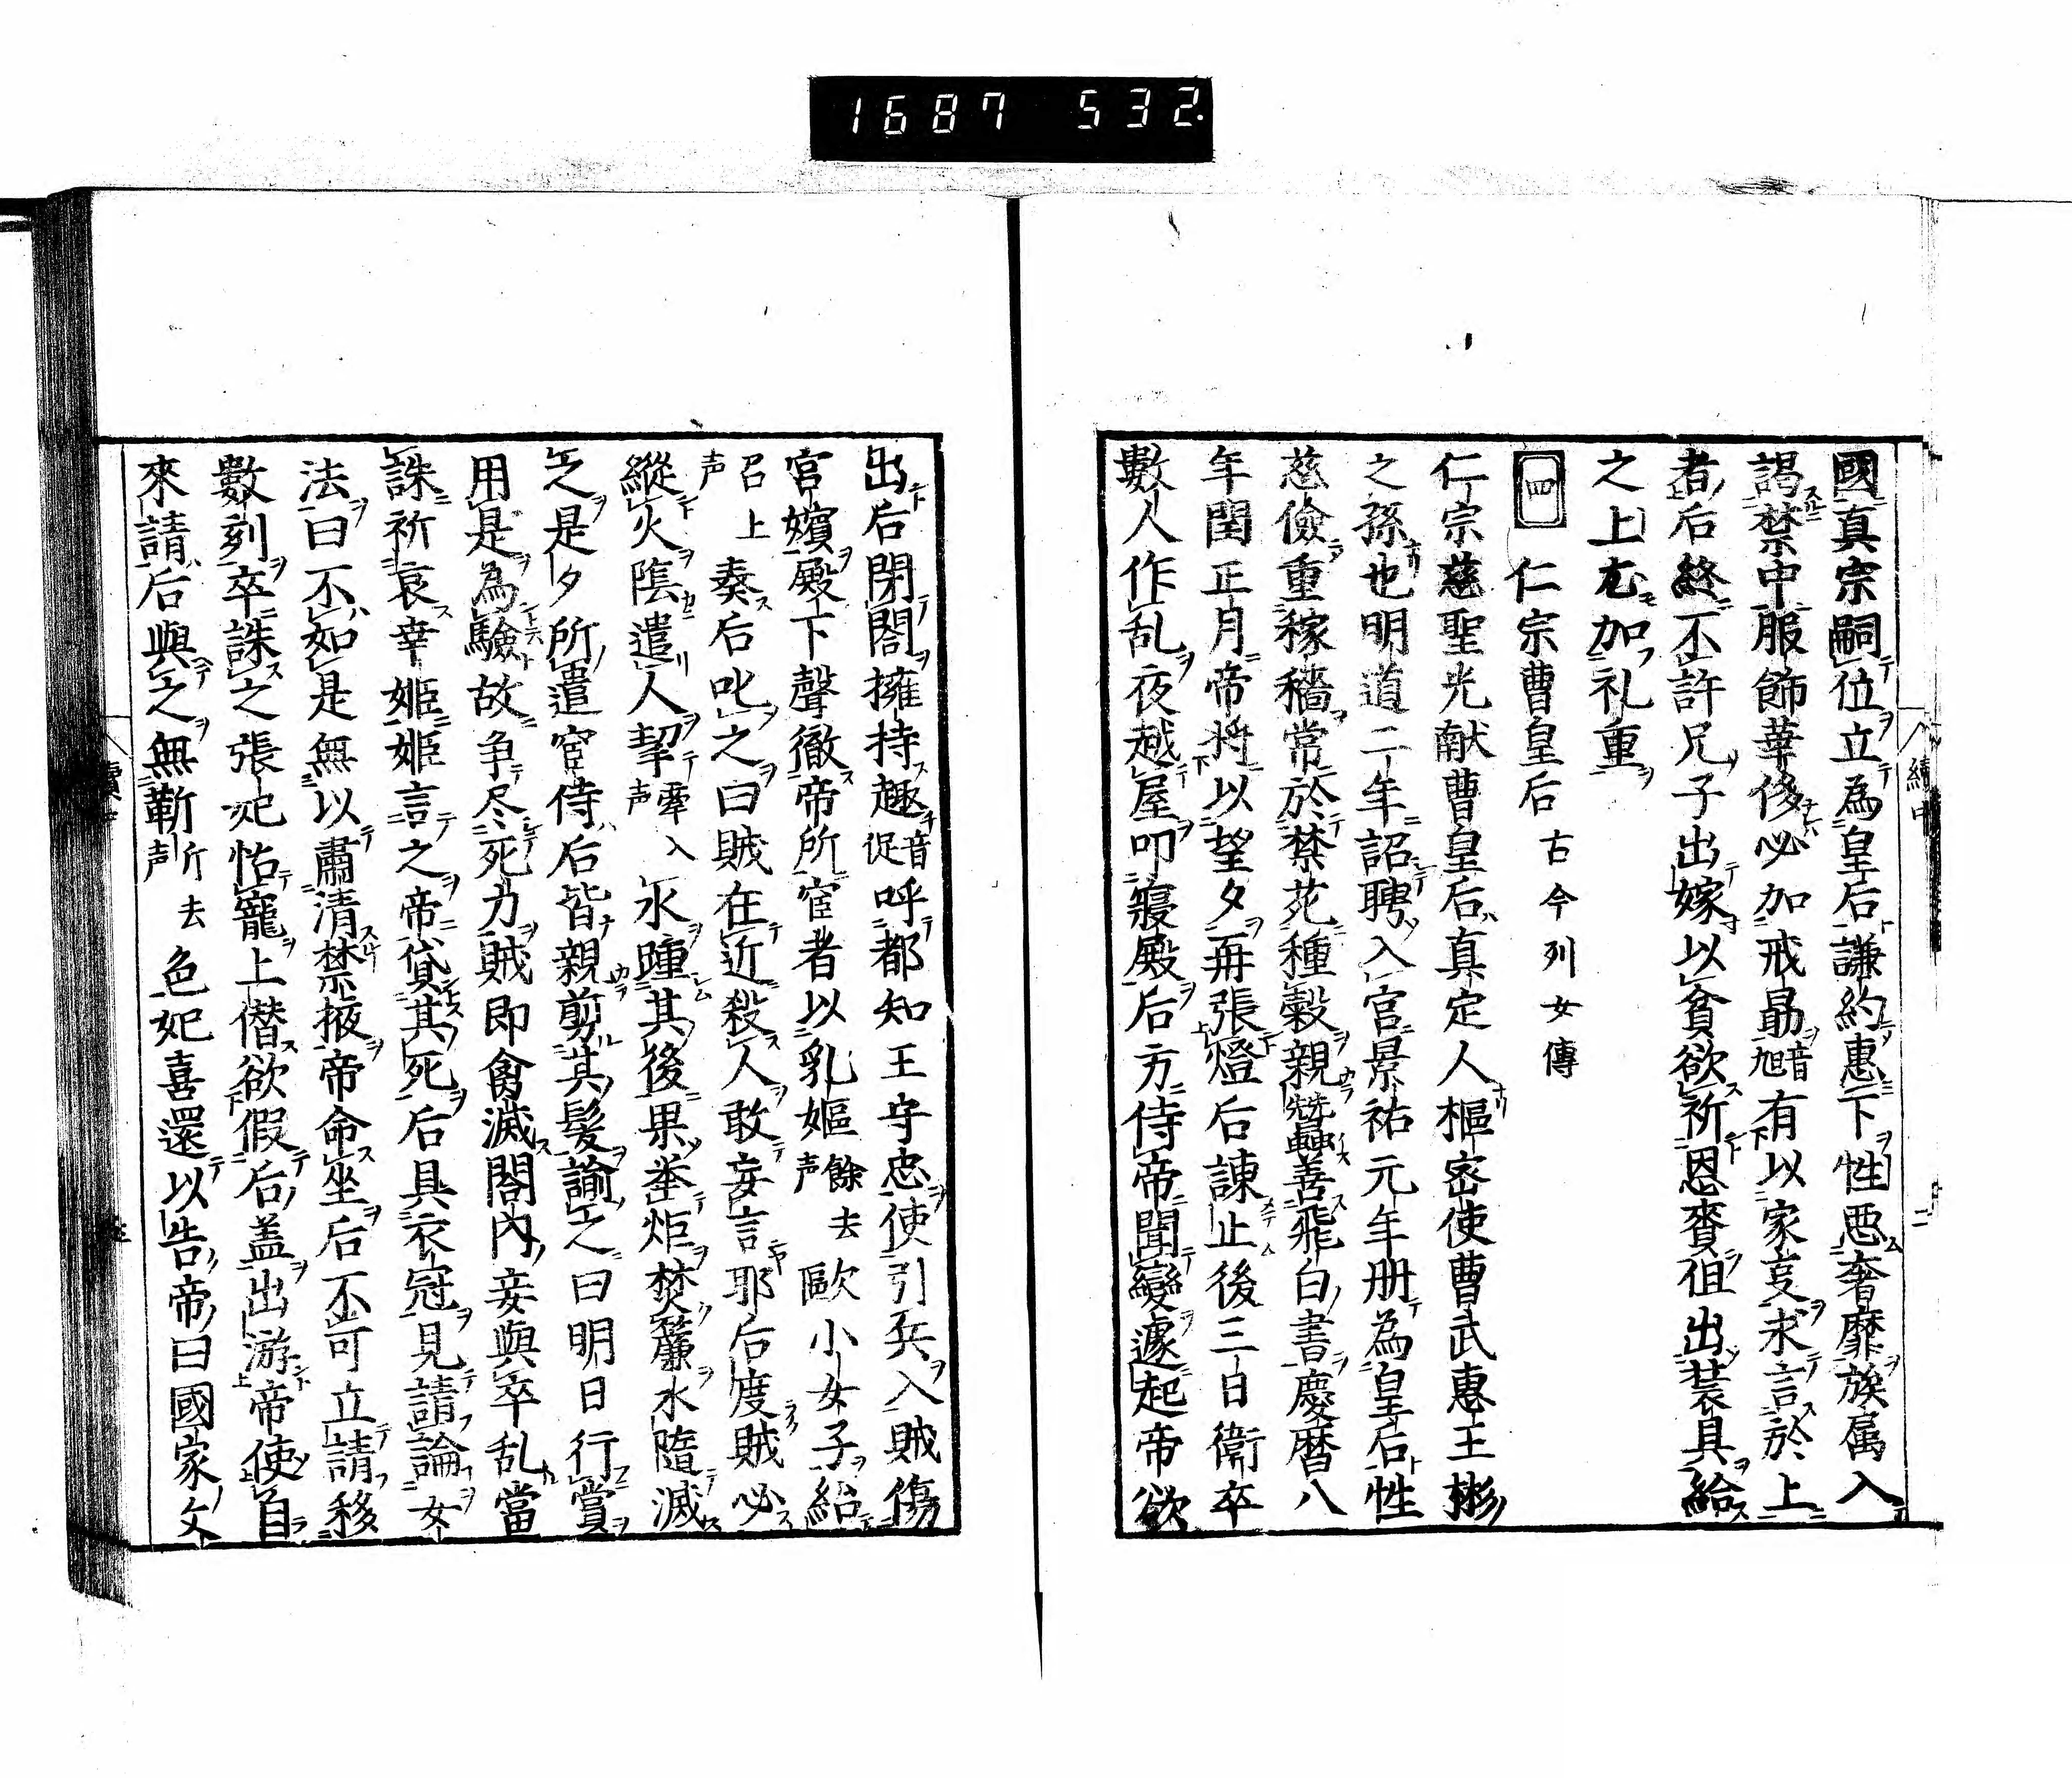 1687 532.
國真宗嗣位立為皇后謙約惠下性惡奢靡族属入
謁禁中服飾華侈必加戒勗音旭有以家亥求言於上
者后終不許兄子出嫁以貧欲祈恩賚但出装具給
之上尤加礼重
四 仁宗曹皇后 古今列女傳
仁宗慈聖光献曹皇后真定人樞密使曹武惠王彬
之孫也明道二年詔聘入宮景祐元年册為皇后性
慈儉重稼穡常於禁苑種穀親蠶善飛白書慶暦八
年閏正月帝將以望夕再張燈后諫止後三日衛卒
數人作乱夜越屋叩寢殿后方侍帝聞變遽起帝欲
出后閉閤擁持趣音促呼都知王守忠使引兵入賊傷
宮嬪殿下聲徹帝所宦者以乳嫗餘去声歐小女子紿
召上声奏后叱之曰賊在近殺人敢妄言耶后度賊必
縱火陰遣人挈牽入声水踵其後果挙炬焚簾水隨滅
之是夕所遣宦侍后皆親剪其髪諭之曰明日行賞
用是為驗故争尽死力賊即禽滅閤內妾與卒乱當
誅祈哀幸姬姬言之帝貸其死后具衣冠見請論女
法曰不如是無以肅清禁掖帝命坐后不可立請移
數刻卒誅之張妃怙寵上僭欲假后盖出游帝使自
來請后與之無靳斤去声色妃喜還以告帝曰國家文